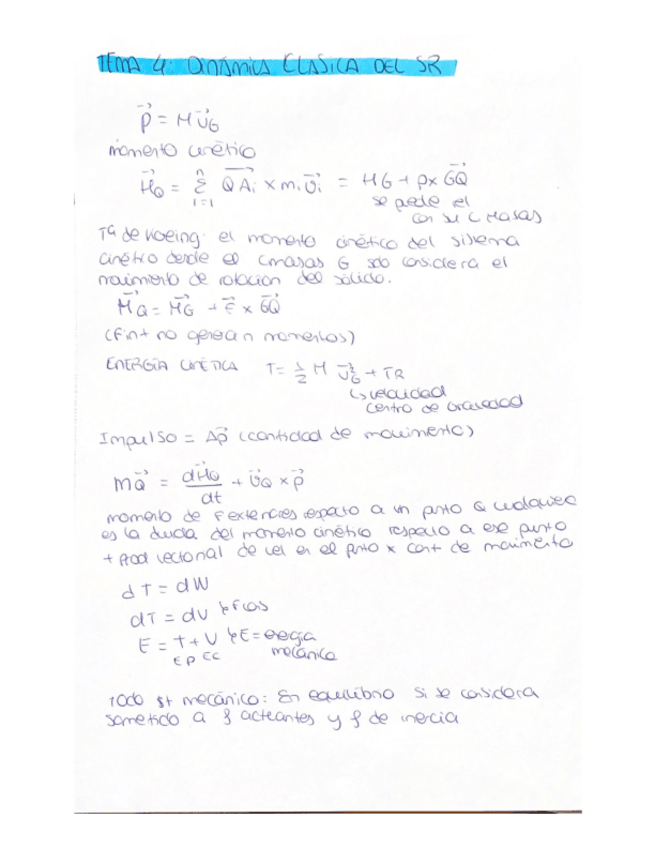 TEMA 4: DINÁMICA CLASICA DEL SR
p⃗ = M v⃗G
momento cinético
H⃗Q = Σ(i=1, n) QAi × mi v⃗i = HG + p × GQ
se pede el
con su C Masas
Tª de Koeing: el momento cinético del sistema
cinético desde el cmasas G solo considera el
movimiento de rotacion del sólido.
M⃗Q = M⃗G + F⃗ × GQ
(Fint no generan momentos)
ENERGÍA CINÉTICA T = 1/2 M v⃗G² + TR
↳ velocidad
centro de Gravedad
Impulso = Δp⃗ (cantidad de movimiento)
m⃗Q = dH⃗Q/dt + v⃗Q × p⃗
momento de F exteriores respecto a un punto Q cualquiera
es la divda del momento cinético respecto a ese punto
+ prod vectorial de vel en el pnto x cant de movimiento
dT = dW
dT = dV } F cos
E = T + V } E = energia
EP EC mecánica
Todo st mecánico: En equilibrio si se considera
sometido a f actuantes y f de inercia